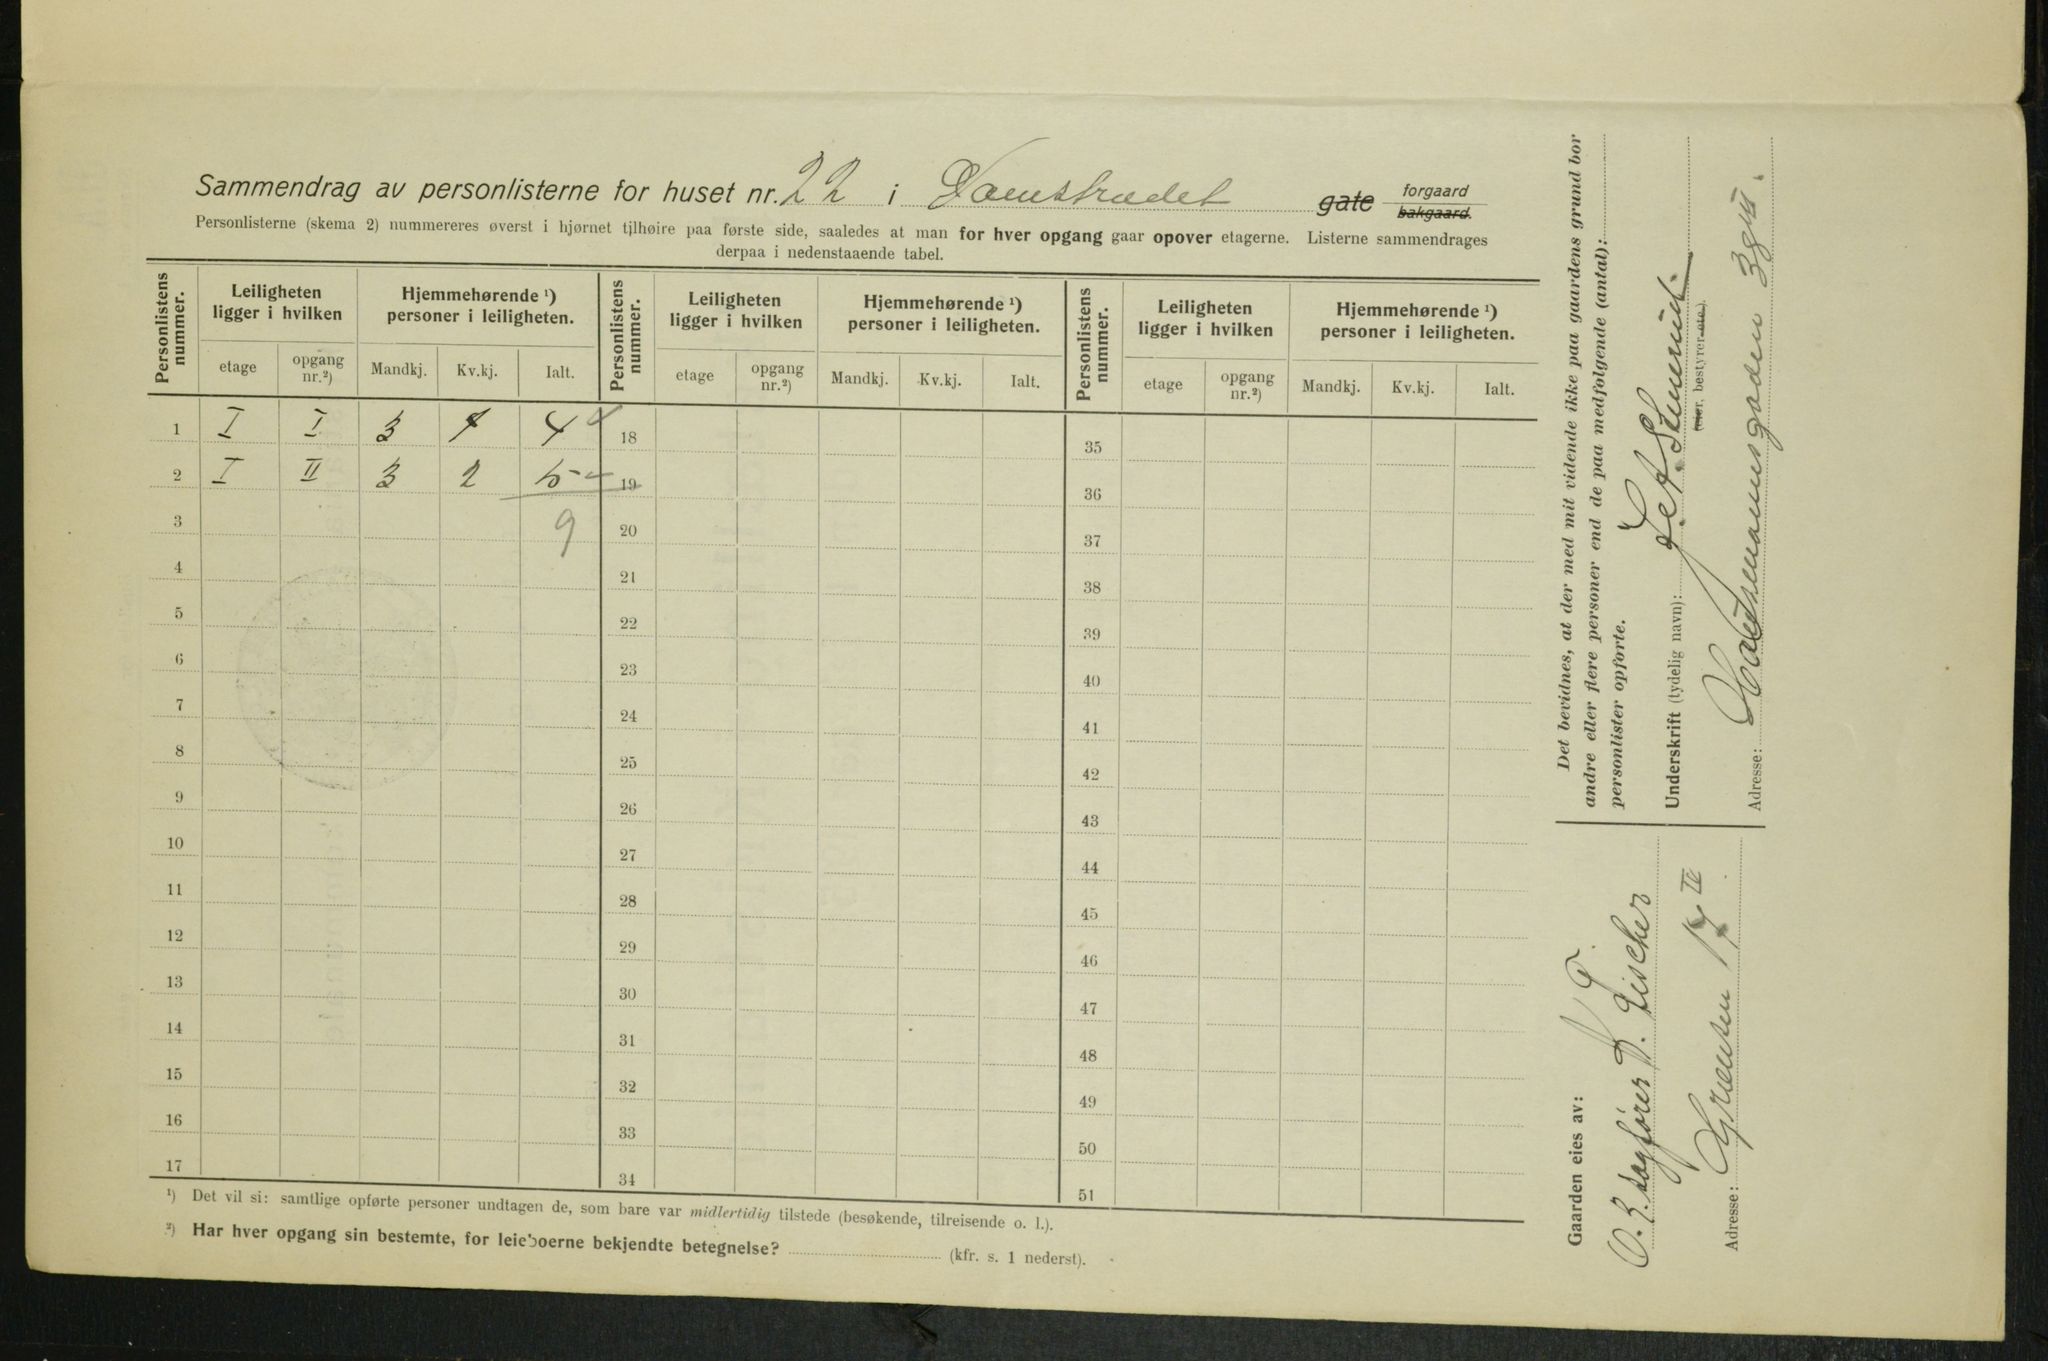 Sammendrag av personlisterne for huset nr. 22 i Damstrædet gate forgaard bakgaard.
Personlisterne (skema 2) nummereres øverst i hjørnet tjlhøire paa første side, saaledes at man for hver opgang gaar opover etagerne. Listerne sammendrages
derpaa i nedenstaaende tabel.
Personlistens nummer. Leiligheten ligger i hvilken Hjemmehørende ¹) personer i leiligheten. Personlistens nummer. Leiligheten ligger i hvilken Hjemmehørende ¹) personer i leiligheten. Personlistens nummer. Leiligheten ligger i hvilken Hjemmehørende ¹) personer i leiligheten.
etage opgang nr.²) Mandkj. Kv.kj. Ialt. etage opgang nr.²) Mandkj. Kv.kj. Ialt. etage opgang nr.²) Mandkj. Kv.kj. Ialt.
1 I I 3 1 4 18 35
2 I II 3 2 5 19 36
3 9 20 37
4 21 38
5 22 39
6 23 40
7 24 41
8 25 42
9 26 43
10 27 44
11 28 45
12 29 46
13 30 47
14 31 48
15 32 49
16 33 50
17 34 51
¹) Det vil si: samtlige opførte personer undtagen de, som bare var midlertidig tilstede (besøkende, tilreisende o. l.).
²) Har hver opgang sin bestemte, for leieboerne bekjendte betegnelse? (kfr. s. 1 nederst).
Det bevidnes, at der med mit vidende ikke paa gaardens grund bor
andre eller flere personer end de paa medfølgende (antal):
personlister opførte.
Underskrift (tydelig navn):
(eier, bestyrer etc.)
Adresse: Hausmannsgaden
Gaarden eies av:
O. r. sagfører K. Fischer
Adresse: Grænsen 17 IV